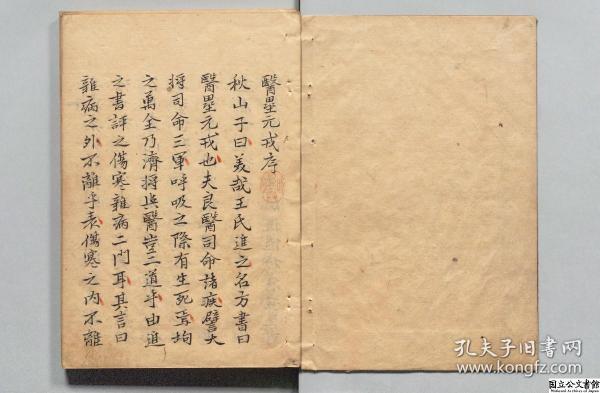 醫壘元戎序
秋山子曰美哉王氏進之名方書曰
醫壘元戎也夫良醫司命諸疾譬大
將司命三軍呼吸之際有生死焉均
之萬全乃濟將與醫豈二道乎由進
之書評之傷寒雜病二門耳其言曰
雜病之外不離乎表傷寒之內不離
孔夫子旧书网
www.kongfz.com
国立公文書館
National Archives of Japan